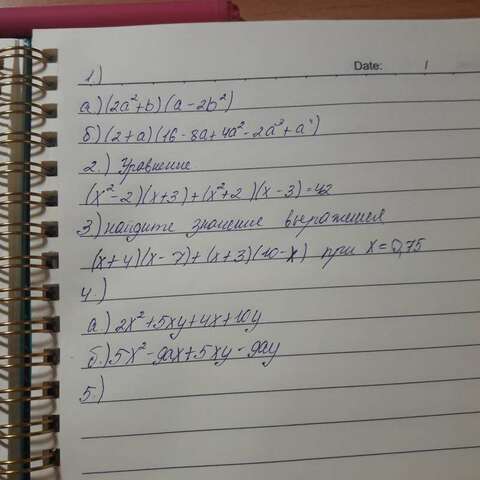 Date: /
1.)
а) (2a²+b)(a-2b²)
б) (2+a)(16-8a+4a²-2a³+a⁴)
2.) Уравнение
(x²-2)(x+3)+(x²+2)(x-3)=42
3) найдите значение выражения
(x+4)(x-7)+(x+3)(10-x) при x=0,75
4)
а.) 2x²+5xy+4x+10y
б.) 5x²-9ax+5xy-9ay
5.)